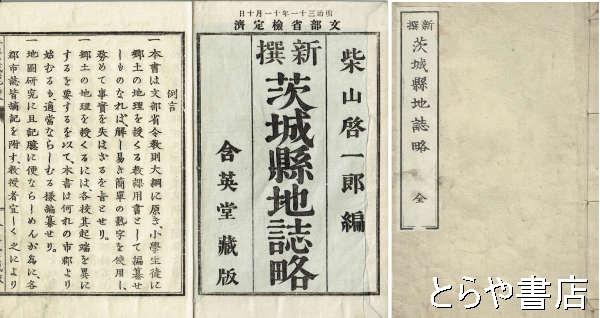 新撰 茨城縣地誌略 全
明治三十一年十一月十日
文部省檢定濟
柴山啓一郎編
新撰
茨城縣地誌略
含英堂藏版
例言
一本書は文部省令教則大綱に原き、小學生徒に
郷土の地理を授くる教課用書として編纂せ
しものなれば、解し易き簡單の熟字を使用し、
務めて事實を失はざるを旨とせり。
一郷土の地理を授くるには、各校其起端を異に
するを要するを以て、本書は何れの市郡より
始むるも適當ならしむる樣編纂せり。
一地圖研究に且記臆に便ならしめんが為に、各
郡市誌皆諭記を附す、教授者宜しく之により
とらや書店